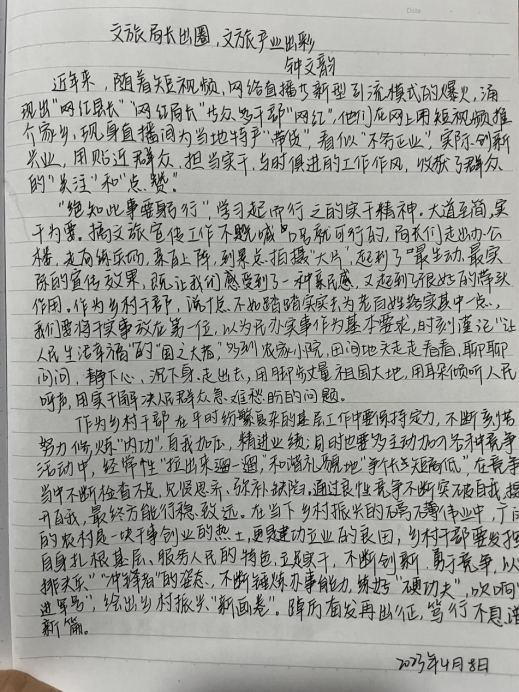 Date
文旅局长出圈，文旅产业出彩
钟文韵
近年来，随着短视频，网络直播等新型引流模式的爆火，涌
现出"网红县长""网红局长"等众多干部"网红"，他们在网上用短视频推
介家乡，现身直播间为当地特产"带货"，看似"不务正业"，实际创新
兴业，用贴近群众、担当实干，与时俱进的工作作风，收获了群众
的"关注"和"点赞"。
"绝知此事要躬行"，学习起而行之的实干精神。大道至简，实
干为要。搞文旅宣传工作不是喊口号就可行的，局长们走出办公
楼，亲自上阵，到景点拍摄"大片"，起到了"最生动、最实
际的宣传效果，既让我们感受到了一种亲民感，又起到了很好的带头
作用。作为乡村干部，说千息不如踏踏实实去为老百姓结实其中一点，
我们要将干实事放在第一位，以为民办实事作为基本要求，时刻谨记"让
人民生活幸福"的"国之大者"，多到农家小院，田间地头走走看看，聊聊
问问，静下心、沉下身、走出去，用脚步丈量祖国大地，用耳朵倾听人民
呼声，用实干解决人民群众急难愁盼的问题。
作为乡村干部在平时纷繁复杂的基层工作中要保持定力，不断刻苦
努力修炼"内功"，自我加压，精进业绩；同时也要多主动加入各种竞争
活动中，经常性"拉出来遛一遛"，和谐礼貌地"争长论短高低"，在竞争
当中不断检查不足，见贤思齐、弥补缺陷，通过良性竞争不断突破自我，提
升自我，最终方能行稳致远。在当下乡村振兴的磅礴伟业中，广阔
的农村是一块干事创业的热土，更是建功立业的良田，乡村干部要发挥
自身扎根基层、服务人民的特色，立足实干，不断创新，勇于竞争，以
排头兵""冲锋者"的姿态，不断锤炼办事能力，练好"硬功夫"，吹响
进军号"，绘出乡村振兴"新画卷"。踔厉奋发再出征，笃行不息谱
新篇。
2023年4月8日